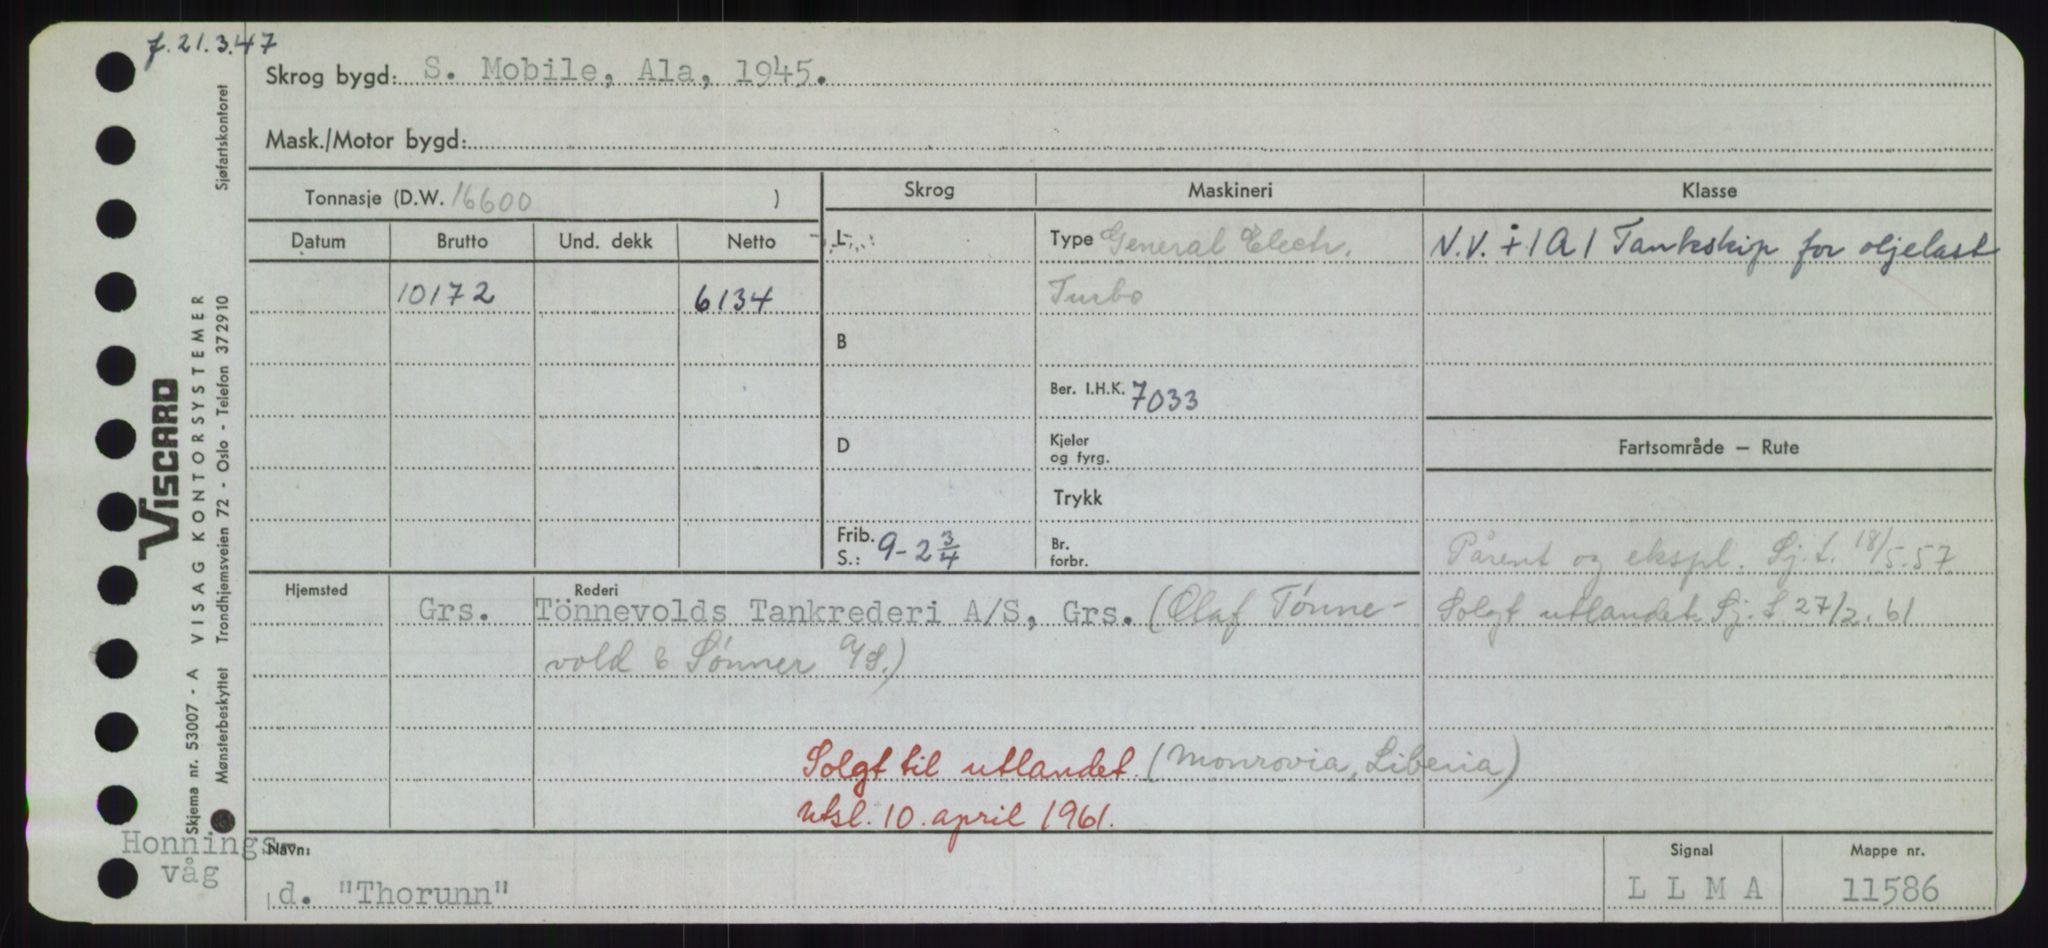 f. 21.3.47
Skrog bygd: S. Mobile, Ala, 1945.
Mask./Motor bygd:
Tonnasje (D.W. 16600 )
Skrog
Maskineri
Klasse
Datum
Brutto
Und. dekk
Netto
L
Type General Electr.
N.V. + 1A1 Tankskip for oljelast
10172
6134
Turbo
B
Ber. I.H.K. 7033
D
Kjeler
og fyrg.
Fartsområde — Rute
Trykk
Frib.
S.: 9-2 3/4
Br.
forbr.
Pårent og ekspl. Sj.f. 18/5.57
Hjemsted
Rederi
Grs.
Tönnevolds Tankrederi A/S, Grs. (Olaf Tønne-
Solgt utlandet. Sj. f. 27/2.61
vold & Sønner A/S.)
Solgt til utlandet. (Monrovia, Liberia)
Utsl. 10. april 1961.
Honnings-
våg
Navn:
d. "Thorunn"
Signal
L L M A
Mappe nr.
11586
VISCARD
Skjema nr. 53007 - A VISAG KONTORSYSTEMER
Mønsterbeskyttet Trondhjemsveien 72 - Oslo - Telefon 372910 Sjøfartskontoret